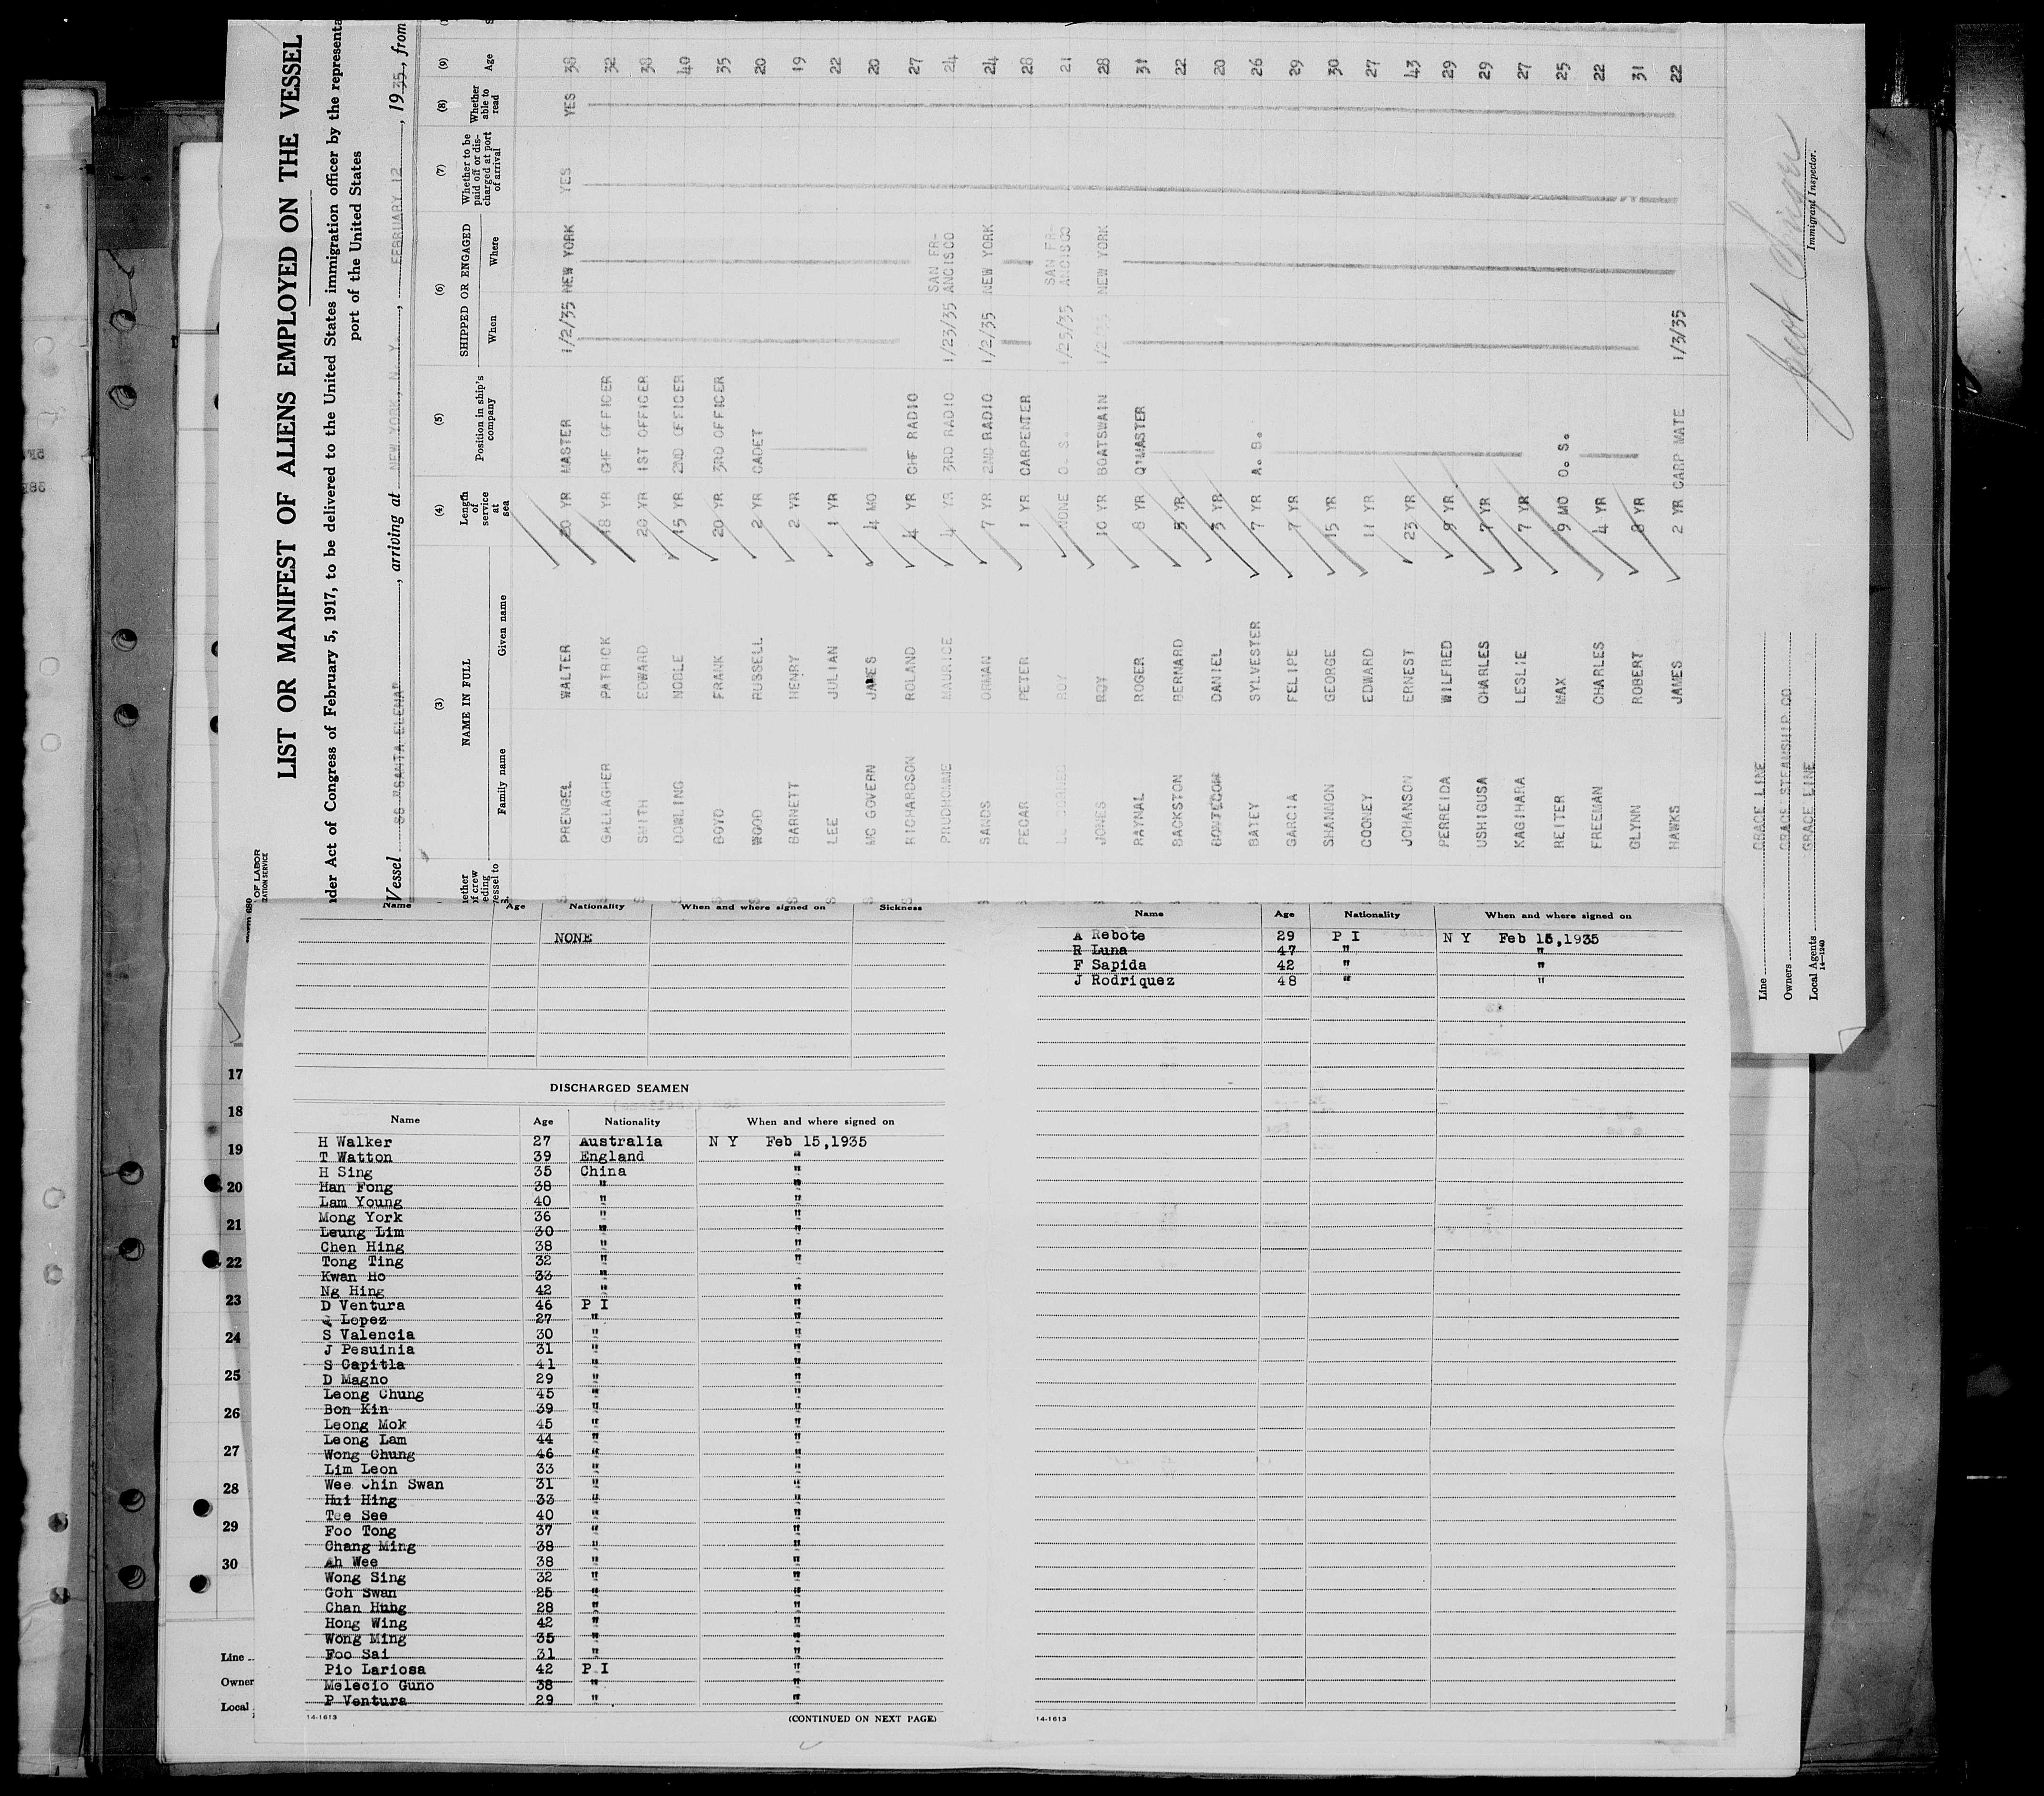 LIST OR MANIFEST OF ALIENS EMPLOYED ON THE VESSEL
nder Act of Congress of February 5, 1917, to be delivered to the United States immigration officer by the representa
port of the United States
Vessel SS "SANTA ELENA", arriving at NEW YORK, N. Y., FEBRUARY 12, 1935, from
(3) (4) (5) (6) (7) (8) (9)
NAME IN FULL Length of service at sea Position in ship's company SHIPPED OR ENGAGED Whether to be paid off or discharged at port of arrival Whether able to read Age
Family name Given name When Where
PRENGEL WALTER 20 YR MASTER 1/2/35 NEW YORK YES YES 38
GALLAGHER PATRICK 18 YR CHF OFFICER 32
SMITH EDWARD 20 YR 1ST OFFICER 38
DOWLING NOBLE 15 YR 2ND OFFICER 40
BOYD FRANK 20 YR 3RD OFFICER 35
WOOD RUSSELL 2 YR CADET 20
BARNETT HENRY 2 YR 19
LEE JULIAN 1 YR 22
MC GOVERN JAMES 4 MO 20
RICHARDSON ROLAND 4 YR CHF RADIO 27
PRUDHOMME MAURICE 4 YR 3RD RADIO 1/23/35 SAN FR-ANCISCO 24
SANDS ORMAN 7 YR 2ND RADIO 1/2/35 NEW YORK 24
PECAR PETER 1 YR CARPENTER 28
ROY NONE O. S. 1/25/35 SAN FR-ANCISCO 21
JONES ROY 10 YR BOATSWAIN NEW YORK 28
RAYNAL ROGER 8 YR Q'MASTER 31
BACKSTON BERNARD 5 YR 22
DANIEL 3 YR 20
BATEY SYLVESTER 7 YR A. B. 26
GARCIA FELIPE 7 YR 29
SHANNON GEORGE 15 YR 30
COONEY EDWARD 11 YR 27
JOHANSON ERNEST 23 YR 43
PERREIDA WILFRED 9 YR 29
USHIGUSA CHARLES 7 YR 29
KAGIHARA LESLIE 7 YR 27
RETTER MAX 9 MO O. S. 25
FREEMAN CHARLES 4 YR 22
GLYNN ROBERT 8 YR 31
HAWKS JAMES 2 YR CARP MATE 1/3/35 22
Immigrant Inspector.
Line GRACE LINE
Owners GRACE STEAMSHIP CO
Local Agents GRACE LINE
14-1240
Name Age Nationality When and where signed on Sickness
NONE
DISCHARGED SEAMEN
Name Age Nationality When and where signed on
H Walker 27 Australia N Y Feb 15,1935
T Watton 39 England "
H Sing 35 China "
Han Fong 38 " "
Lam Young 40 " "
Mong York 36 " "
Leung Lim 30 " "
Chen Hing 38 " "
Tong Ting 32 " "
Kwan Ho 33 "
Ng Hing 42 " "
D Ventura 46 P I "
A Lopez 27 " "
S Valencia 30 " "
J Pesuinia 31 " "
S Capitla 41 " "
D Magno 29 " "
Leong Chung 45 " "
Bon Kin 39 " "
Leong Mok 45 " "
Leong Lam 44 " "
Wong Chung 46 " "
Lim Leon 33 " "
Wee Chin Swan 31 " "
Hui Hing 33 " "
Tee See 40 " "
Foo Tong 37 " "
Chang Ming 38 " "
Ah Wee 38 " "
Wong Sing 32 " "
Goh Swan 25 " "
Chan Hung 28 " "
Hong Wing 42 " "
Wong Ming 35 " "
Foo Sai 31 " "
Pio Lariosa 42 P I "
Melecio Guno 38 " "
P Ventura 29 " "
14-1613 (CONTINUED ON NEXT PAGE)
Name Age Nationality When and where signed on
A Rebote 29 P I N Y Feb 15,1935
R Luna 47 " "
F Sapida 42 " "
J Rodriquez 48 " "
14-1613
17
18
19
20
21
22
23
24
25
26
27
28
29
30
Line
Owner
Local